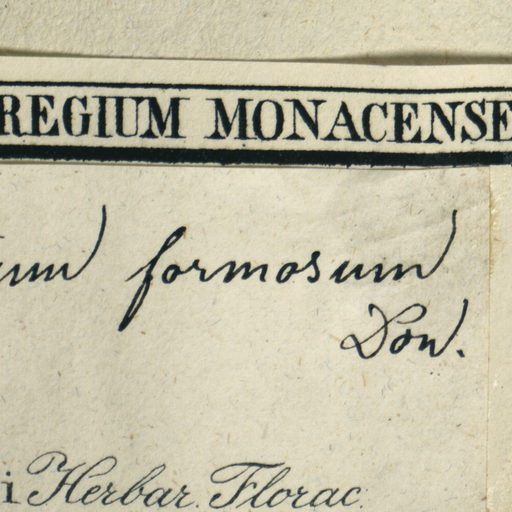 REGIUM MONACENSE
formosum
Don.
i Herbar. Florac.